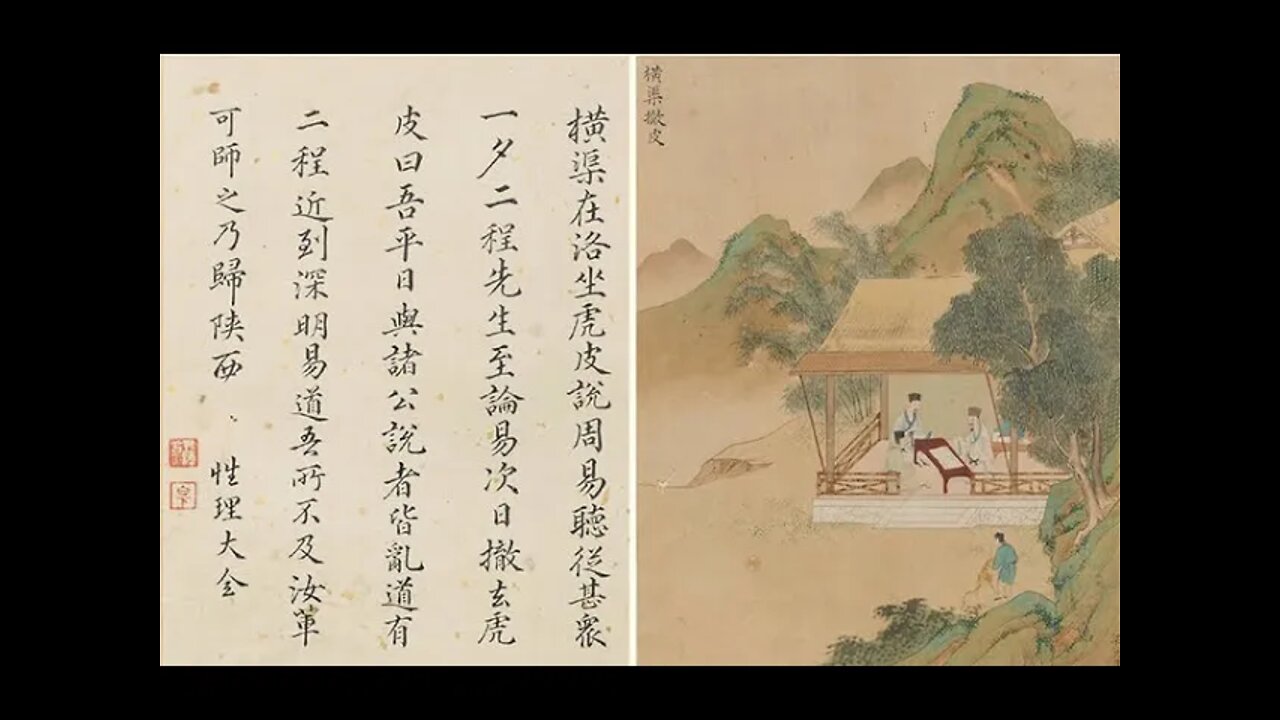 橫渠在洛坐虎皮說周易聽從甚衆
一夕二程先生至論易次日撤去虎
皮曰吾平日與諸公說者皆亂道有
二程近到深明易道吾所不及汝輩
可師之乃歸陝西
性理大全
橫渠撤皮